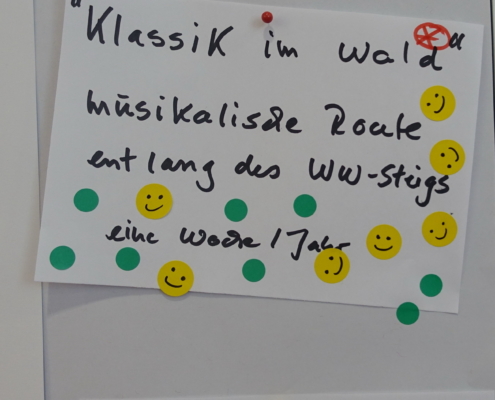 "Klassik im Wald"
musikalische Route
entlang des WW-Steigs
eine Woche / Jahr